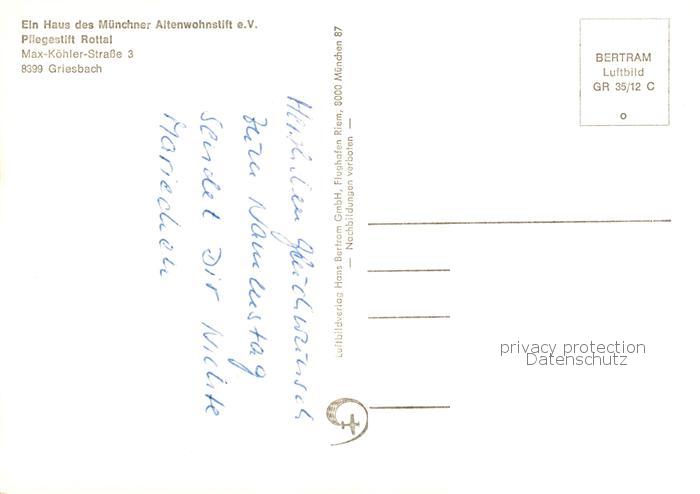 Ein Haus des Münchner Altenwohnstift e.V.
Pflegestift Rottal
Max-Köhler-Straße 3
8399 Griesbach
Herzlichen Glückwunsch
zum Namenstag
sendet Dir Nichte
Mariechen
Luftbildverlag Hans Bertram GmbH, Flughafen Riem, 8000 München 87
— Nachbildungen verboten —
BERTRAM
Luftbild
GR 35/12 C
privacy protection
Datenschutz